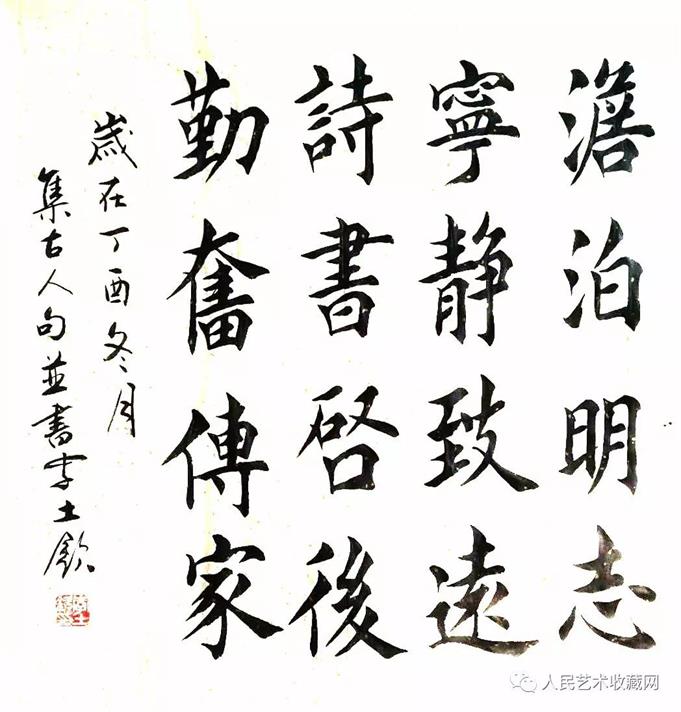 澹泊明志
寧静致遠
詩書啓後
勤奮傳家
歲在丁酉冬月
集古人句並書李士欽
人民艺术收藏网